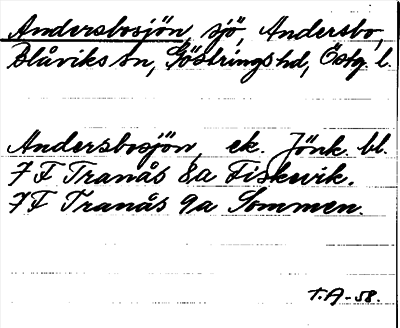 Andersbosjön, sjö, Andersbo,
Blåviks sn, Göstrings hd, Östg. l.
Andersbosjön, ek. Jönk. bl.
7 F Tranås 8a Fiskevik.
7 F Tranås 9a Sommen.
T.A-58.